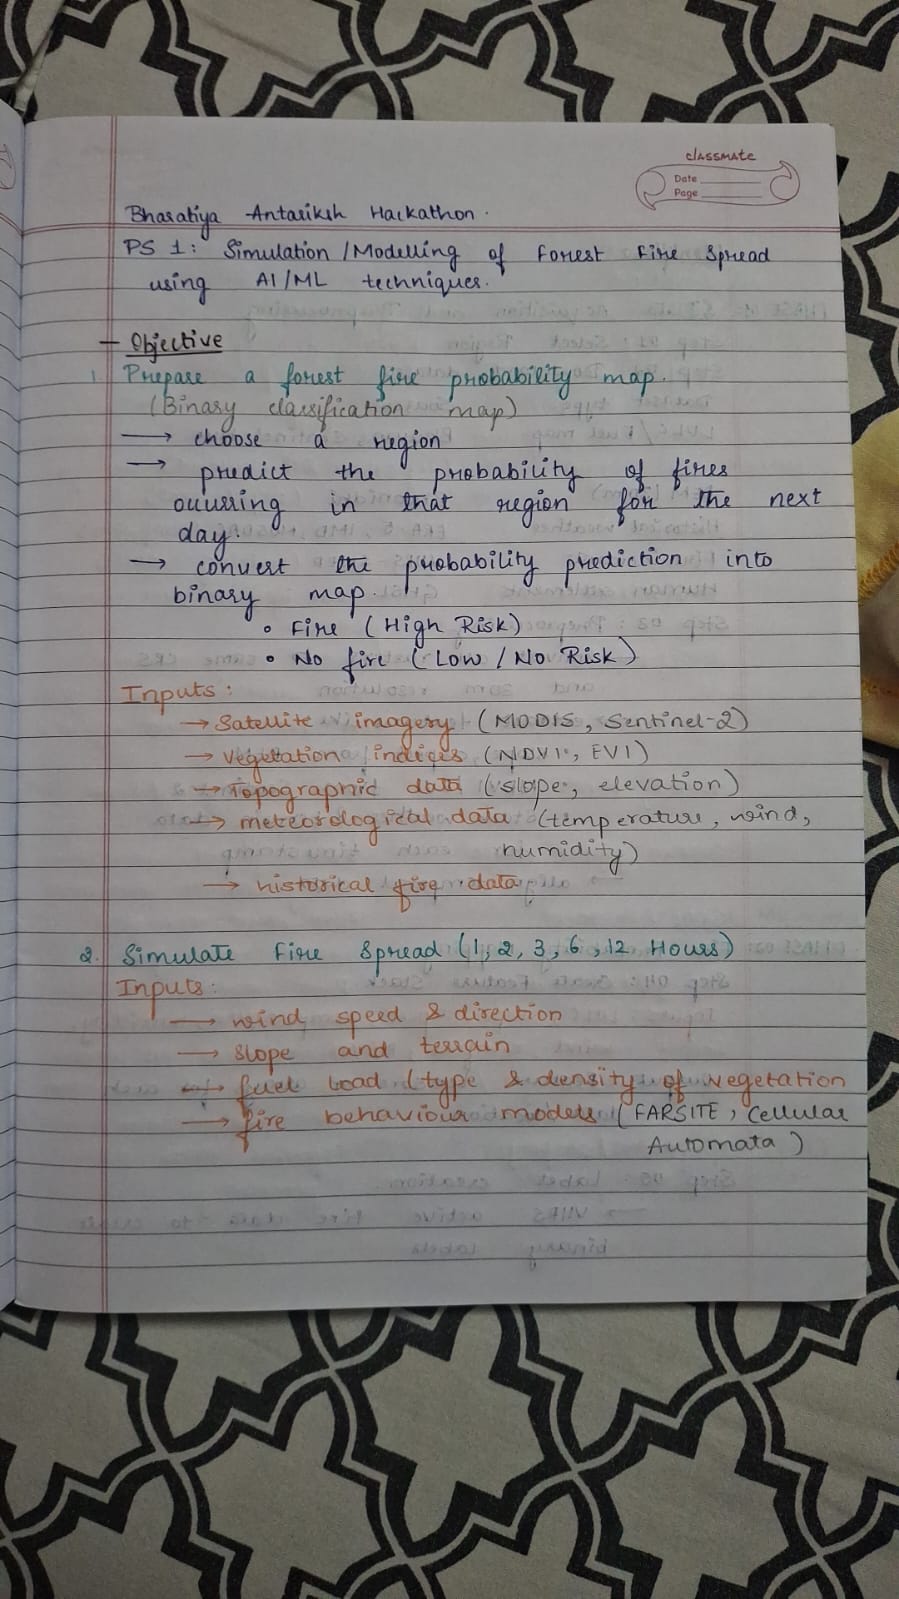 classmate
Date
Page
Bharatiya Antariksh Hackathon.
PS 1: Simulation / Modelling of Forest Fire Spread
using AI/ML techniques.
– Objective
1. Prepare a forest fire probability map.
(Binary classification map)
→ choose a region
→ predict the probability of fires
ouurring in that region for the next
day.
→ convert the probability prediction into
binary map.
• Fire (High Risk)
• No fire (Low / No Risk)
Inputs:
→ Satellite imagery (MODIS, Sentinel-2)
→ vegetation indices (NDVI, EVI)
→ Topographic data (slope, elevation)
→ meteorological data (temperature, wind,
humidity)
→ historical fire data
2. Simulate Fire Spread (1, 2, 3, 6, 12 Hours)
Inputs:
→ wind speed & direction
→ slope and terrain
→ fuel load (type & density of vegetation
→ fire behaviour models (FARSITE, Cellular
Automata)